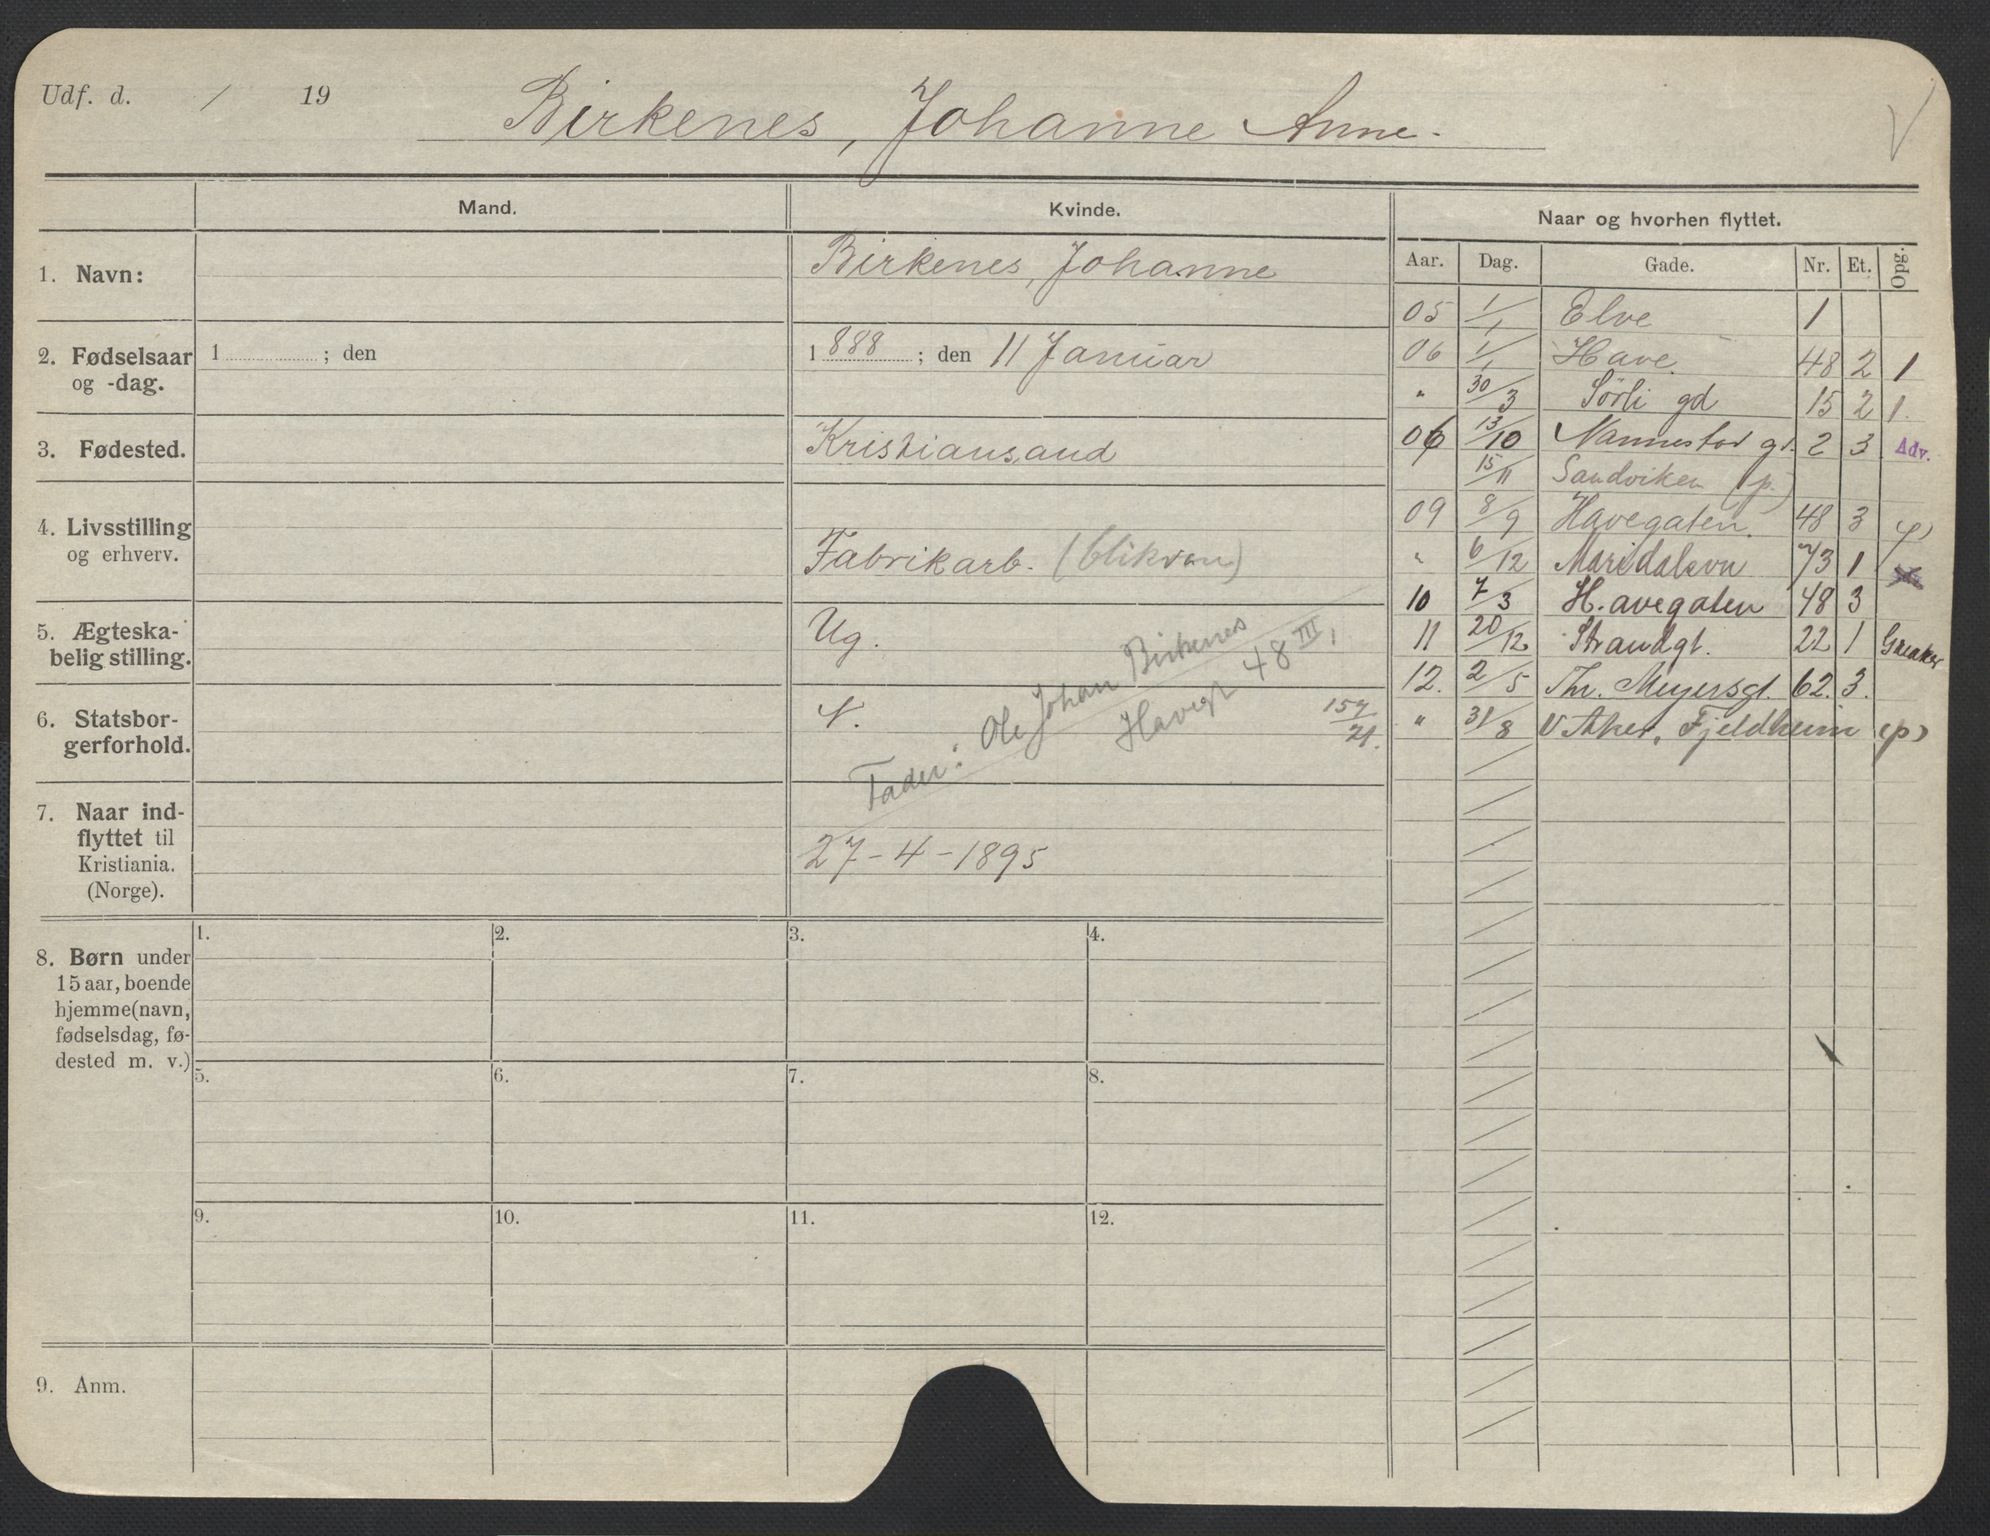 Udf. d. / 19
Birkenes, Johanne Anne.
V
Mand.
Kvinde.
Naar og hvorhen flyttet.
Aar. Dag. Gade. Nr. Et. Opg.
1. Navn:
Birkenes, Johanne
2. Fødselsaar
og -dag.
1 ; den
1 888 ; den 11 Januar
3. Fødested.
Kristiansand
4. Livsstilling
og erhverv.
Fabrikarb. (blikvan)
5. Ægteska-
belig stilling.
Ug.
6. Statsbor-
gerforhold.
N.
157/21.
Fader: Ole Johan Birkenes
Havegt 48 III,
7. Naar ind-
flyttet til
Kristiania.
(Norge).
27-4-1895
8. Børn under
15 aar, boende
hjemme (navn,
fødselsdag, fø-
dested m. v.)
1. 2. 3. 4.
5. 6. 7. 8.
9. 10. 11. 12.
9. Anm.
05 1/1 Elve 1
06 1/1 Have 48 2 1
" 30/3 Sørli gd 15 2 1.
06 13/10 Nannestad gt. 2 3 Adv.
15/11 Sandviken (p.)
09 8/9 Havegaten. 48 3
" 6/12 Maridalsvn 73 1
10 7/3 Havegaten 48 3
11 20/12 Strandgt. 22 1
12. 2/5 Thv. Meyersgt. 62. 3.
" 31/8 V Aker, Fjeldheim (p)